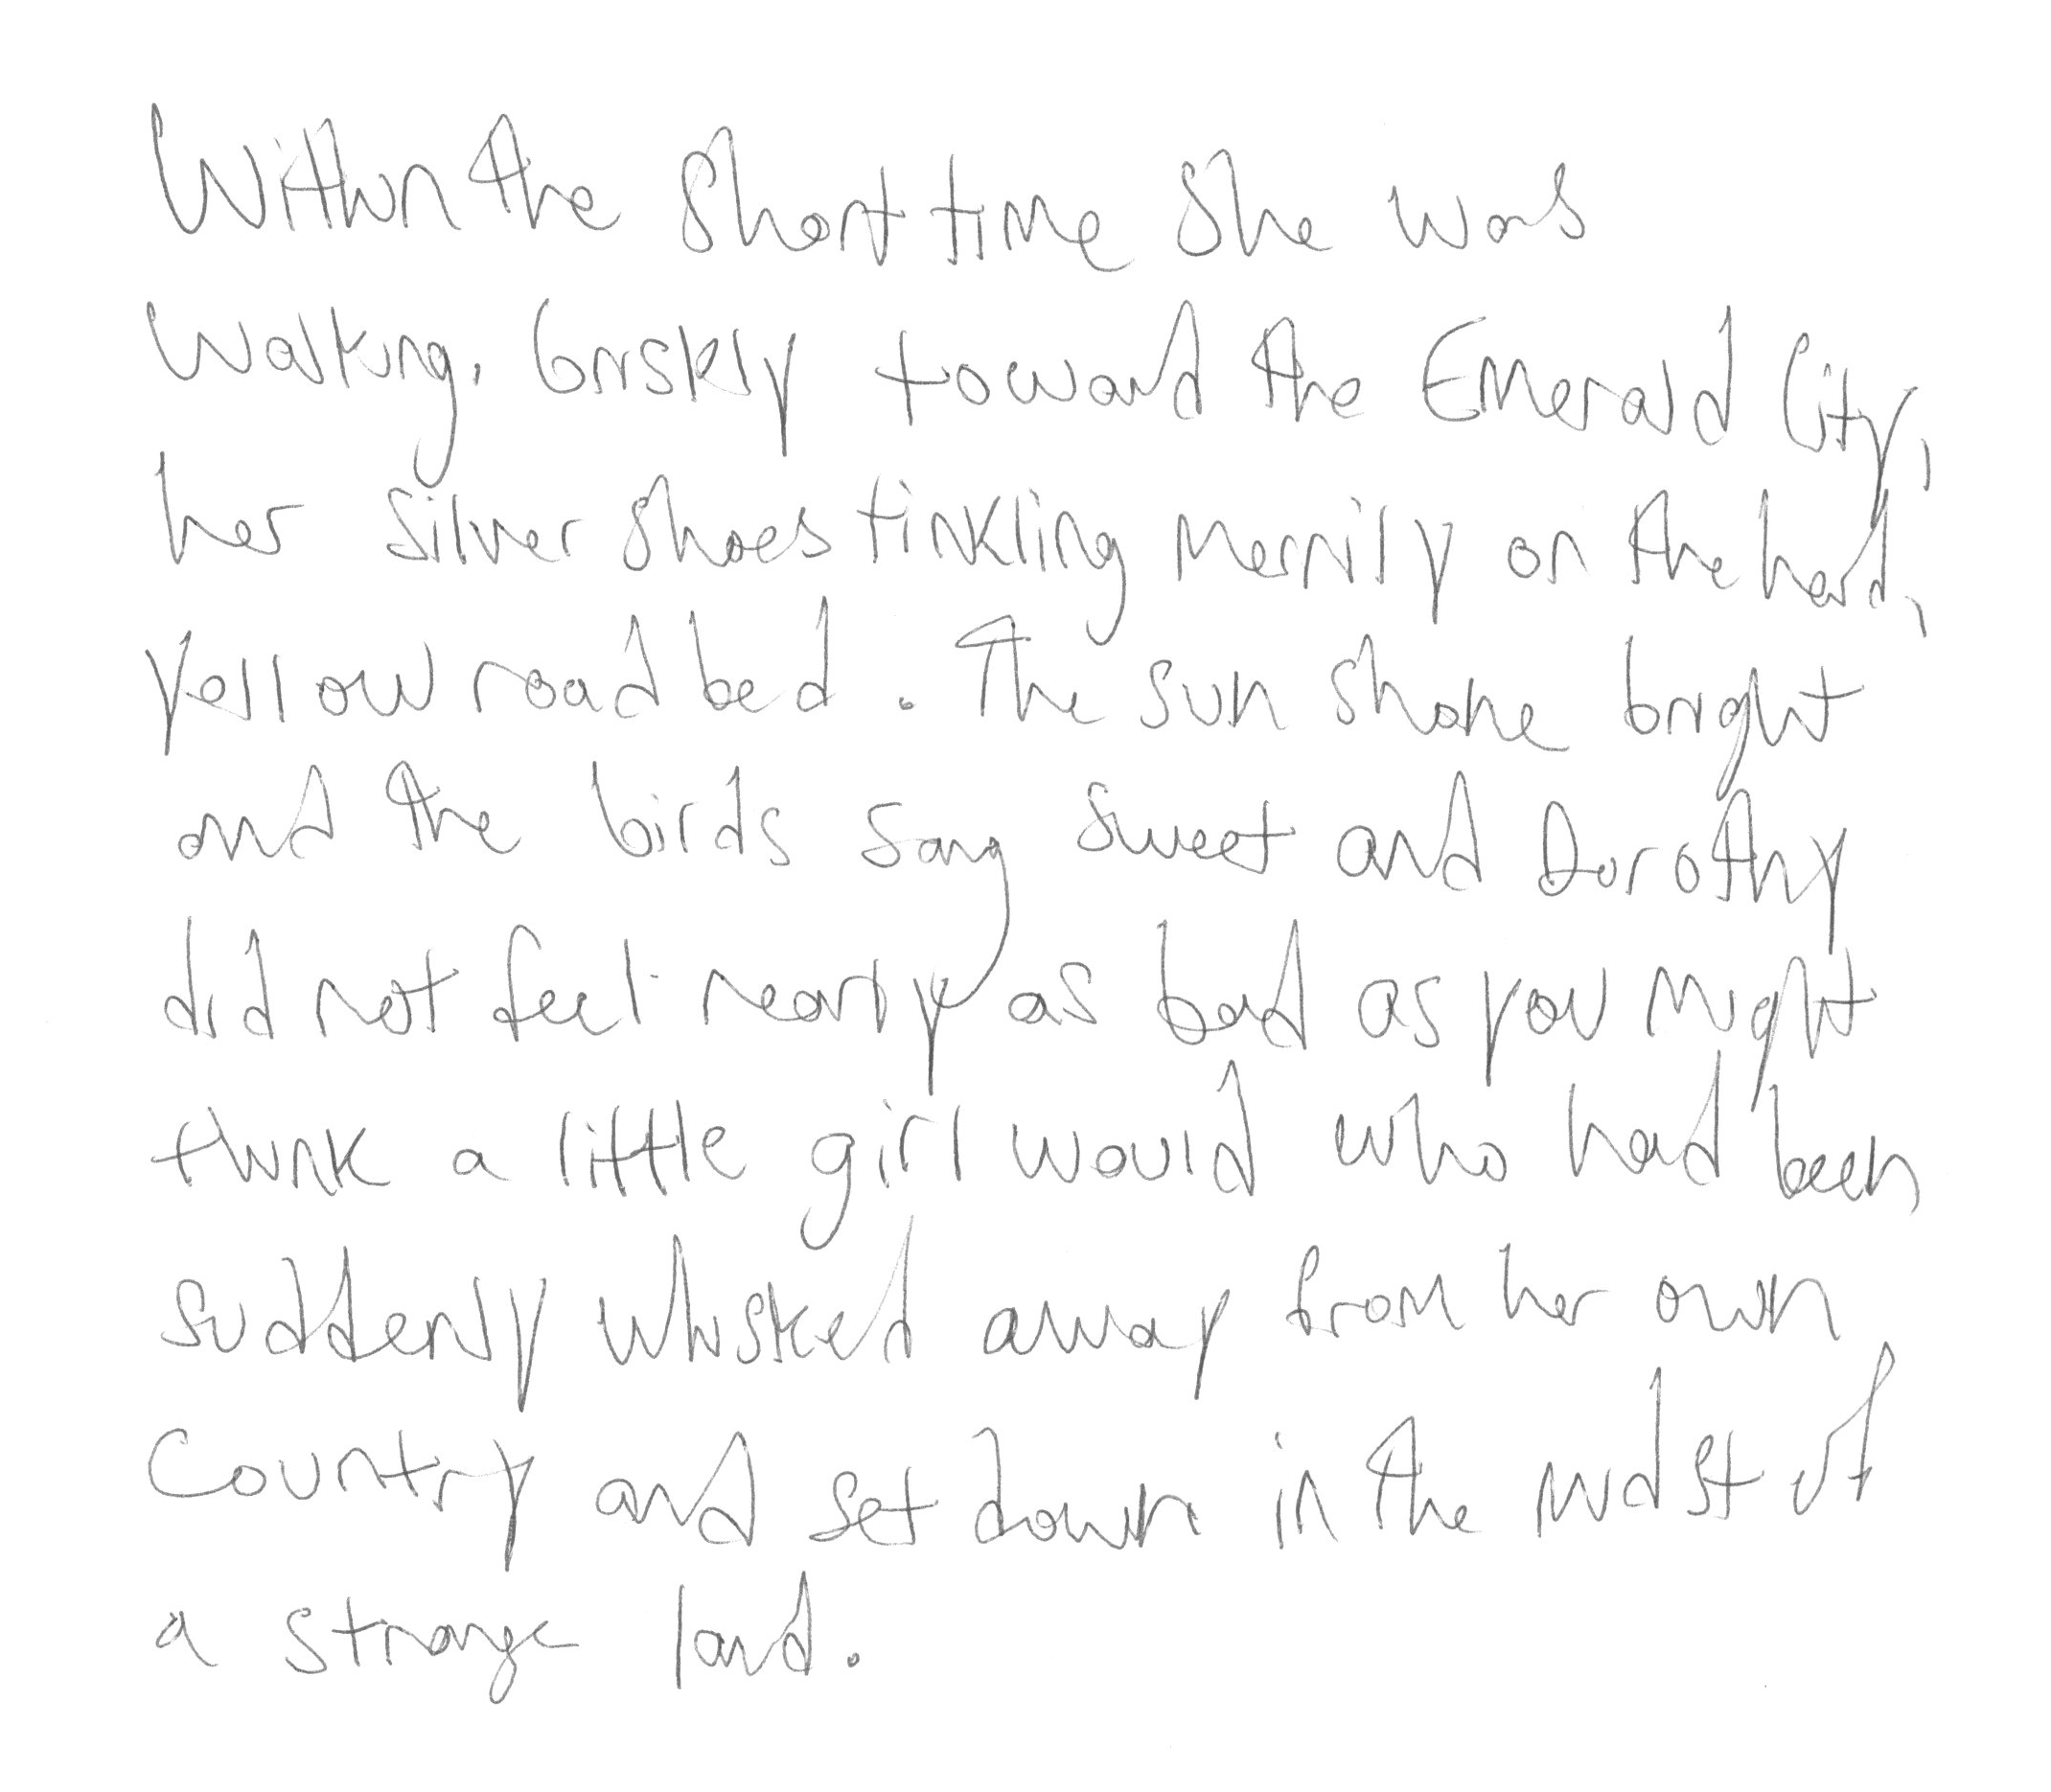 Within the short time she was
walking. briskly toward the Emerald City,
her silver shoes tinkling merrily on the hard,
yellow roadbed. The sun shone bright
and the birds sang sweet and Dorothy
did not feel nearly as bad as you might
think a little girl would who had been
suddenly whisked away from her own
country and set down in the midst of
a strange land.